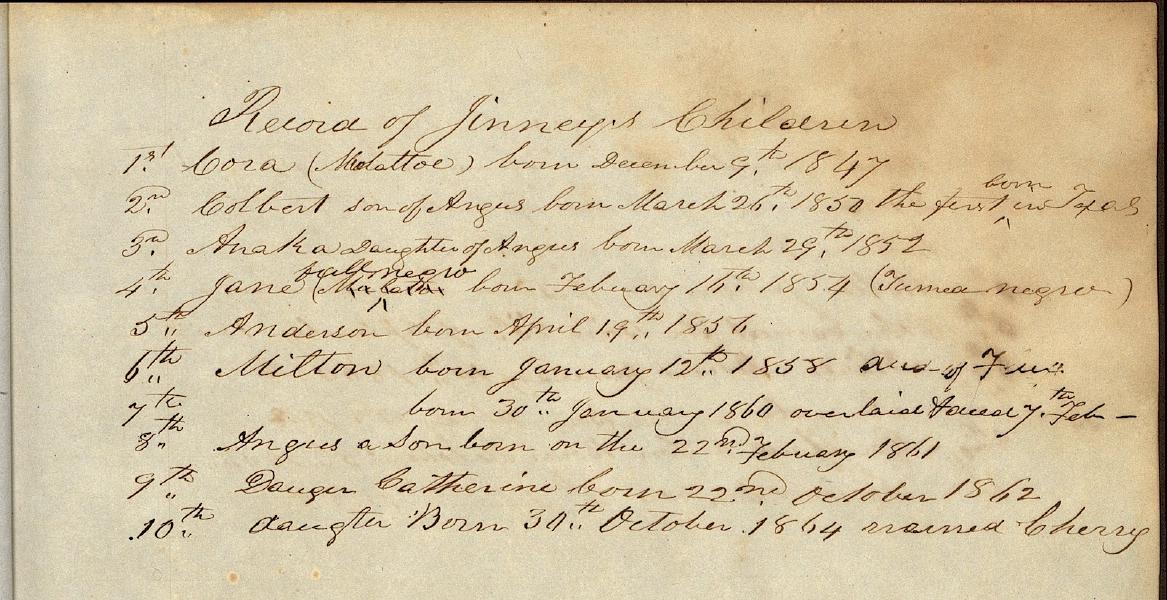 Record of Jinneys Children
1st Cora (Molattoe) born December 9th 1847
2nd Colbert son of Angus born March 26th 1850 the first born in Texas
3rd Anaka Daughter of Angus born March 29th 1852
4th Jane full negro born February 1th 1854 ( negro)
5th Anderson born April 19th 1856
6th Milton born January 12th 1858 of
7th born 30th January 1860 overlaid 7th Feb —
8th Angus a Son born on the 22nd Febuary 1861
9th Dauger Catherine born 22nd October 1862
10th daugter Born 30th October 1864 named Cherry